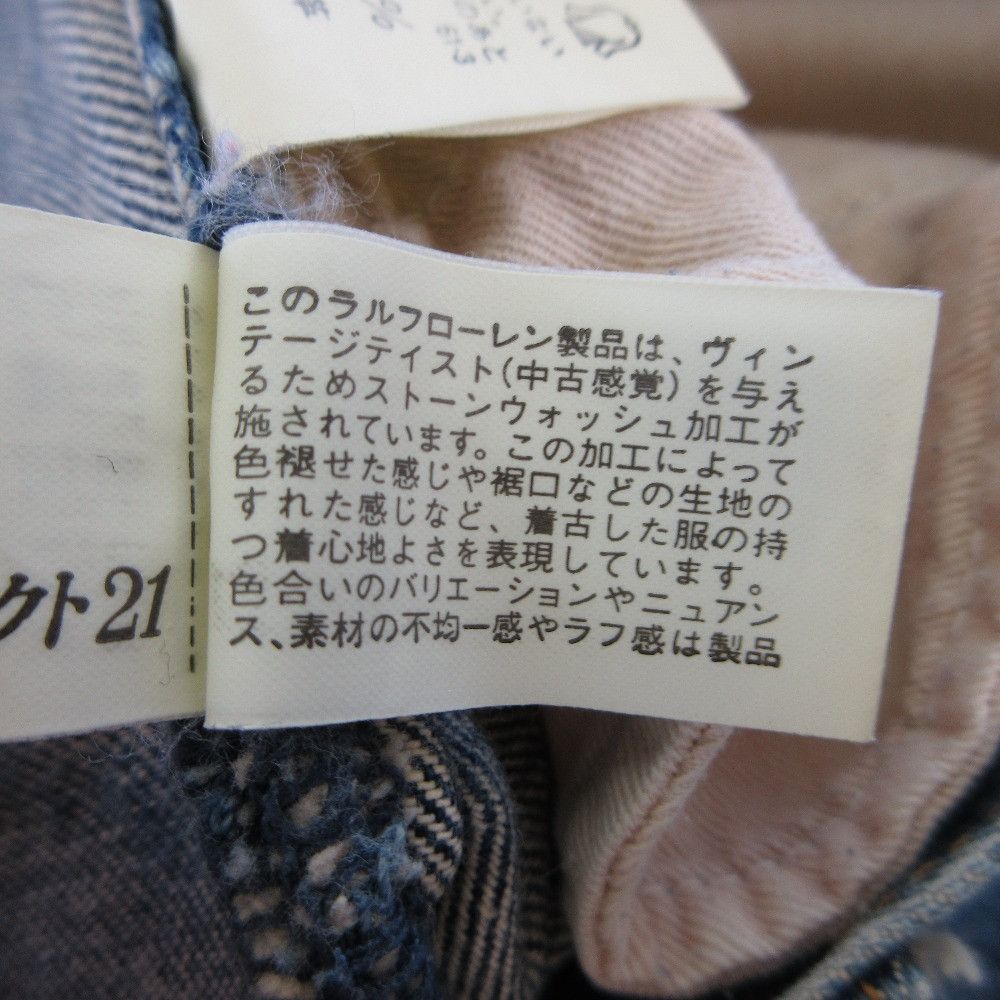 このラルフローレン製品は、ヴィン
テージテイスト(中古感覚)を与え
るためストーンウォッシュ加工が
施されています。この加工によって
色褪せた感じや裾口などの生地の
すれた感じなど、着古した服の持
つ着心地よさを表現しています。
色合いのバリエーションやニュアン
ス、素材の不均一感やラフ感は製品
クト21